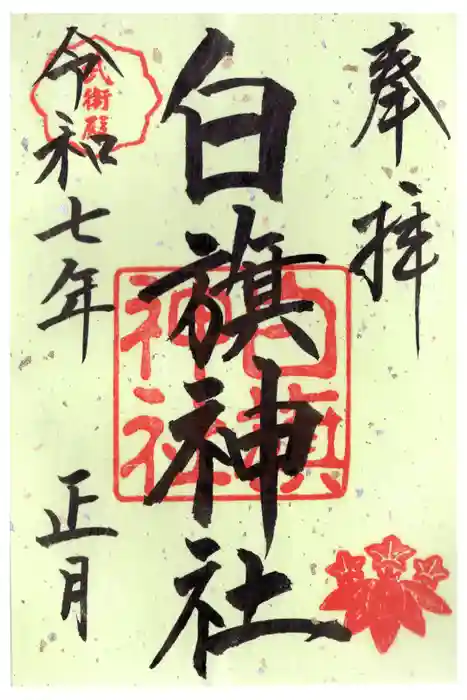 奉拝
白旗神社
白旗神社
武衛殿
令和七年
正月